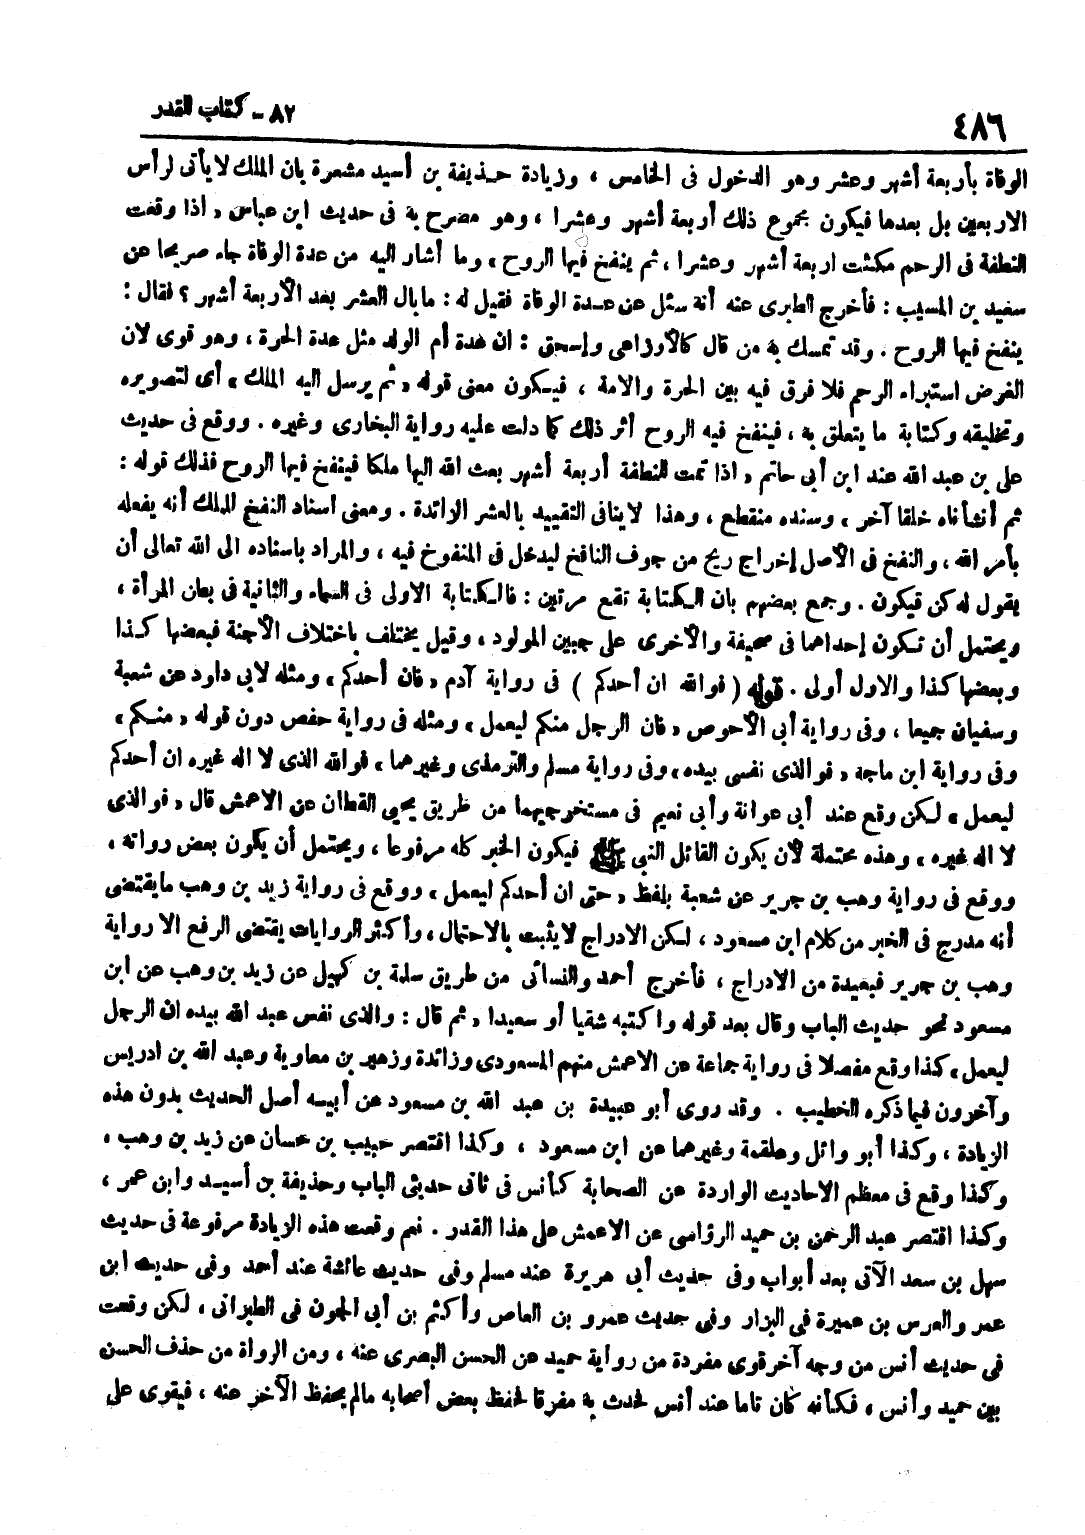 ٤٨٦
٨٢ - كتاب القدر
الوفاة بأربعة أشهر وعشر وهو الدخول فى الخامس ، وزيادة حذيفة بن أسيد مشعرة بان الملك لا يأتى لرأس
الاربعين بل بعدها فيكون مجموع ذلك أربعة أشهر وعشرا ، وهو مصرح به فى حديث ابن عباس « اذا وقعت
النطفة فى الرحم مكثت اربعة أشهر وعشرا ، ثم ينفخ فيها الروح » وما أشار اليه من عدة الوفاة جاء صريحا عن
سعيد بن المسيب : فأخرج الطبرى عنه أنه سئل عن عدة الوفاة فقيل له : ما بال العشر بعد الأربعة أشهر ؟ فقال :
ينفخ فيها الروح . وقد تمسك به من قال كالأوزاعى وإسحق : ان عدة أم الولد مثل عدة الحرة ، وهو قوى لان
الغرض استبراء الرحم فلا فرق فيه بين الحرة والامة ، فيكون معنى قوله « ثم يرسل اليه الملك » أى لتصويره
وتخليقه وكتابة ما يتعلق به ، فينفخ فيه الروح أثر ذلك كما دلت عليه رواية البخارى وغيره . ووقع فى حديث
على بن عبد الله عند ابن أبى حاتم « اذا تمت للنطفة أربعة أشهر بعث الله اليها ملكا فينفخ فيها الروح فذلك قوله :
ثم أنشأناه خلقا آخر » وسنده منقطع ، وهذا لا ينافى التقييد بالعشر الزائدة . ومعنى اسناد النفخ للملك أنه يفعله
بأمر الله ، والنفخ فى الأصل إخراج ريح من جوف النافخ ليدخل فى المنفوخ فيه ، والمراد باسناده الى الله تعالى أن
يقول له كن فيكون . وجمع بعضهم بان الكتابة تقع مرتين : فالكتابة الاولى فى السماء والثانية فى بطن المرأة ،
ويحتمل أن تكون إحداهما فى صحيفة والأخرى على جبين المولود ، وقيل يختلف باختلاف الأجنة فبعضها كذا
وبعضها كذا والاول أولى . قوله ( فوالله ان أحدكم ) فى رواية آدم « فان أحدكم » ومثله لابى داود عن شعبة
وسفيان جميعا ، وفى رواية أبى الأحوص « فان الرجل منكم ليعمل » ومثله فى رواية حفص دون قوله « منكم »
وفى رواية ابن ماجه « فوالذى نفسى بيده » وفى رواية مسلم والترمذى وغيرهما « فوالله الذى لا اله غيره ان أحدكم
ليعمل » لكن وقع عند أبى عوانة وأبى نعيم فى مستخرجيهما من طريق يحيى القطان عن الاعمش قال « فوالذى
لا اله غيره » وهذه محتملة لأن يكون القائل النبى ﷺ فيكون الخبر كله مرفوعا ، ويحتمل أن يكون بعض رواته ،
ووقع فى رواية وهب بن جرير عن شعبة بلفظ « حتى ان أحدكم ليعمل » ووقع فى رواية زيد بن وهب ما يقتضى
أنه مدرج فى الخبر من كلام ابن مسعود ، لكن الادراج لا يثبت بالاحتمال ، وأكثر الروايات يقتضى الرفع الا رواية
وهب بن جرير فبعيدة من الادراج ، فأخرج أحمد والنسائى من طريق سلمة بن كهيل عن زيد بن وهب عن ابن
مسعود نحو حديث الباب وقال بعد قوله واكتبه شقيا أو سعيدا « ثم قال : والذى نفس عبد الله بيده ان الرجل
ليعمل » كذا وقع مفصلا فى رواية جماعة عن الاعمش منهم المسعودى وزائدة وزهير بن معاوية وعبد الله بن ادريس
وآخرون فيما ذكره الخطيب . وقد روى أبو عبيدة بن عبد الله بن مسعود عن أبيه أصل الحديث بدون هذه
الزيادة ، وكذا أبو وائل وعلقمة وغيرهما عن ابن مسعود ، وكذا اقتصر حبيب بن حسان عن زيد بن وهب ،
وكذا وقع فى معظم الاحاديث الواردة عن الصحابة كأنس فى ثانى حديثى الباب وحذيفة بن أسيد وابن عمر ،
وكذا اقتصر عبد الرحمن بن حميد الرؤاسى عن الاعمش على هذا القدر . نعم وقعت هذه الزيادة مرفوعة فى حديث
سهل بن سعد الآتى بعد أبواب وفى حديث أبى هريرة عند مسلم وفى حديث عائشة عند أحمد وفى حديث ابن
عمر والعرس بن عميرة فى البزار وفى حديث عمرو بن العاص وأكثم بن أبى الجون فى الطبرانى ، لكن وقعت
فى حديث أنس من وجه آخر قوى مفردة من رواية حميد عن الحسن البصرى عنه ، ومن الرواة من حذف الحسن
بين حميد وأنس ، فكأنه كان تاما عند أنس لحدث به مفرقا لحفظ بعض أصحابه مالم يحفظ الآخر عنه ، فيقوى على